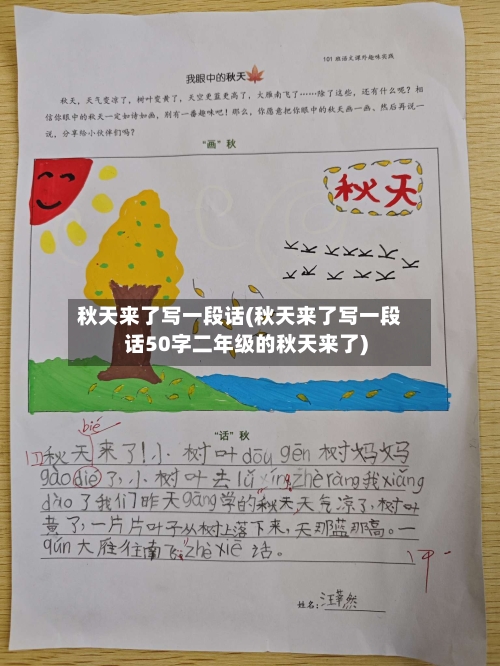 101班语文课外趣味实践
我眼中的秋天
秋天，天气变凉了，树叶变黄了，天空更蓝更高了，大雁南飞了……除了这些，还有什么呢？相
信你眼中的秋天一定如诗如画，别有一番趣味吧！那么，你愿意把你眼中的秋天画一画、然后再说一
说，分享给小伙伴们吗？
“画”秋
秋天
秋天来了写一段话(秋天来了写一段
话50字二年级的秋天来了)
“话”秋
bié
秋天来了！小树叶dōu gēn树妈妈
gào dié了，小树叶去lǚ xíng，zhè ràng我xiǎng
dào了我们昨天gāng学的秋天天气凉了，树叶
黄了，一片片叶子从树上落下来，天那蓝那高。一
qún大雁往南飞zhè xiē话。
姓名：汪